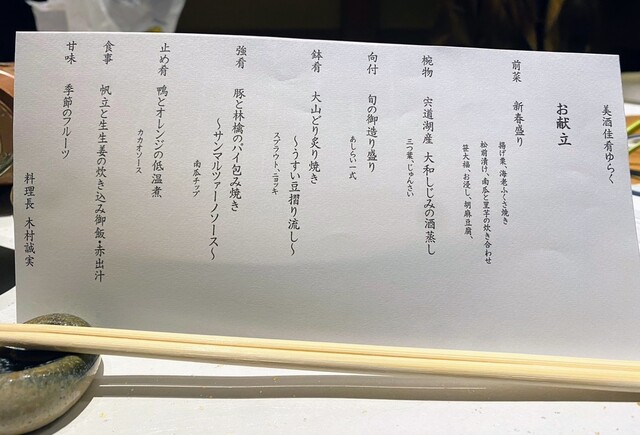 美酒佳肴ゆらく
お献立
前菜 新春盛り
揚げ栗、海老ふくさ焼き
松前漬け、南瓜と里芋の炊き合わせ
笹大福、お浸し、胡麻豆腐、
椀物 宍道湖産 大和しじみの酒蒸し
三つ葉、じゅんさい
向付 旬の御造り盛り
あしらい一式
鉢肴 大山どり炙り焼き
～うすい豆摺り流し～
スプラウト、ニョッキ
強肴 豚と林檎のパイ包み焼き
～サンマルツァーノソース～
南瓜チップ
止め肴 鴨とオレンジの低温煮
カカオソース
食事 帆立と生生姜の炊き込み御飯・赤出汁
甘味 季節のフルーツ
料理長 木村誠実